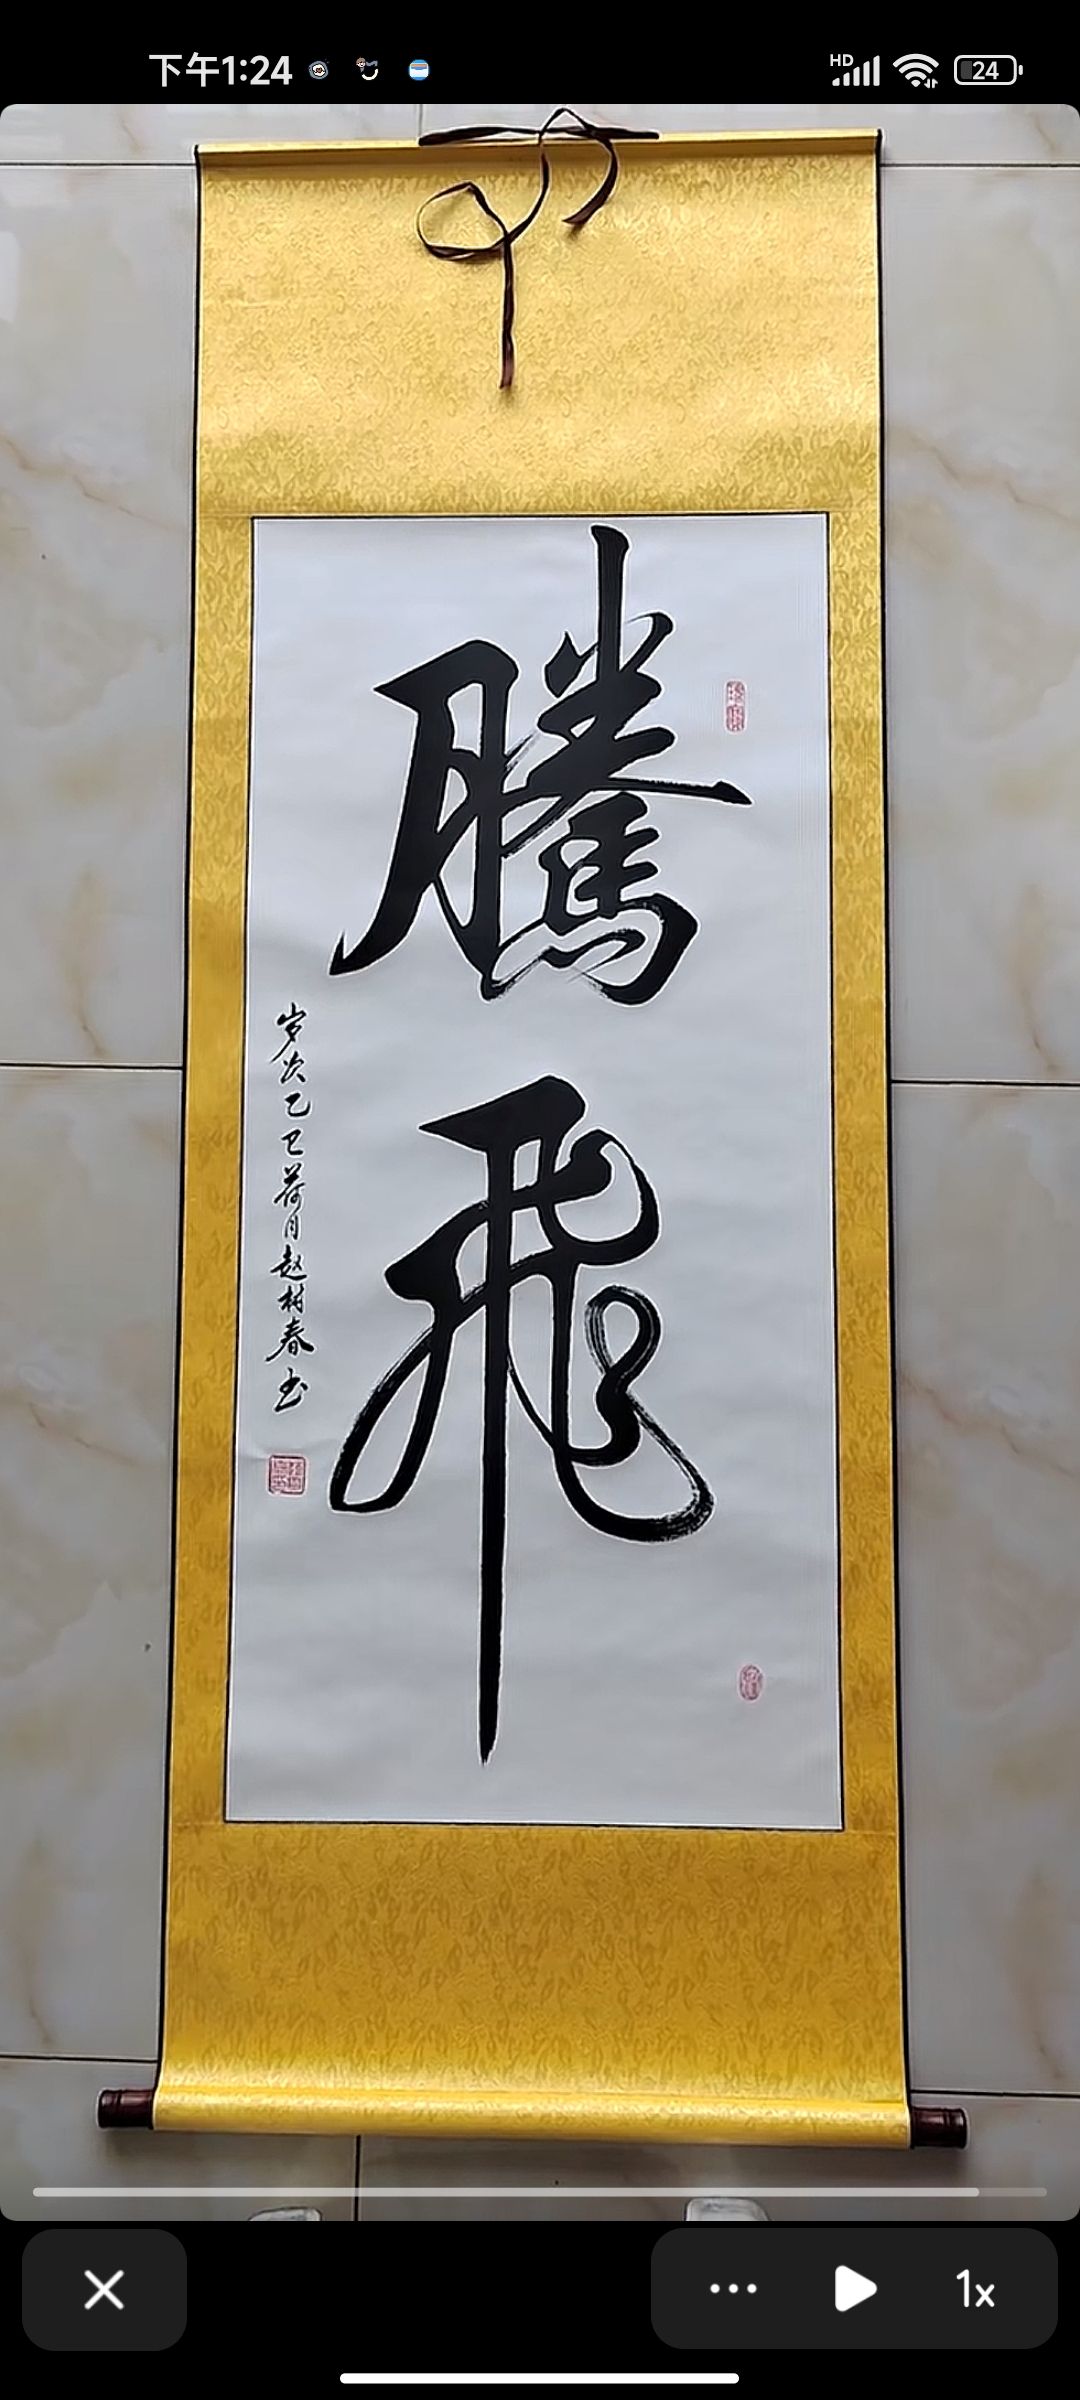 下午1:24
HD
24
騰飛
岁次乙巳荷月赵树春书
1x